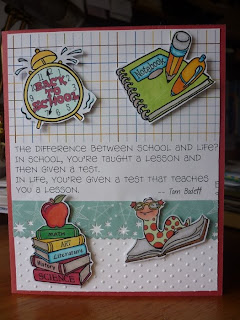 BACK
TO
SCHOOL
Notebook
THE DIFFERENCE BETWEEN SCHOOL AND LIFE?
IN SCHOOL, YOU'RE TAUGHT A LESSON AND
THEN GIVEN A TEST.
IN LIFE, YOU'RE GIVEN A TEST THAT TEACHES
YOU A LESSON.
-- Tom Bodett
MATH
ART
LITERATURE
HISTORY
SCIENCE